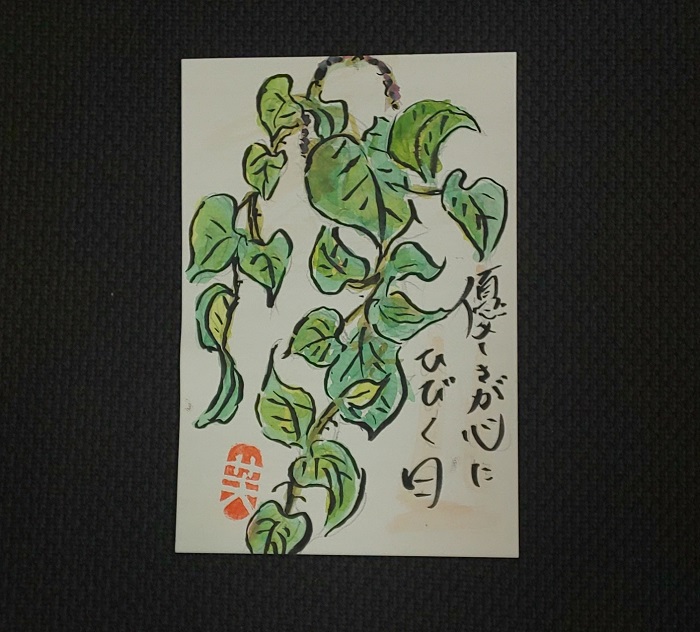 優しさが心に
ひびく日